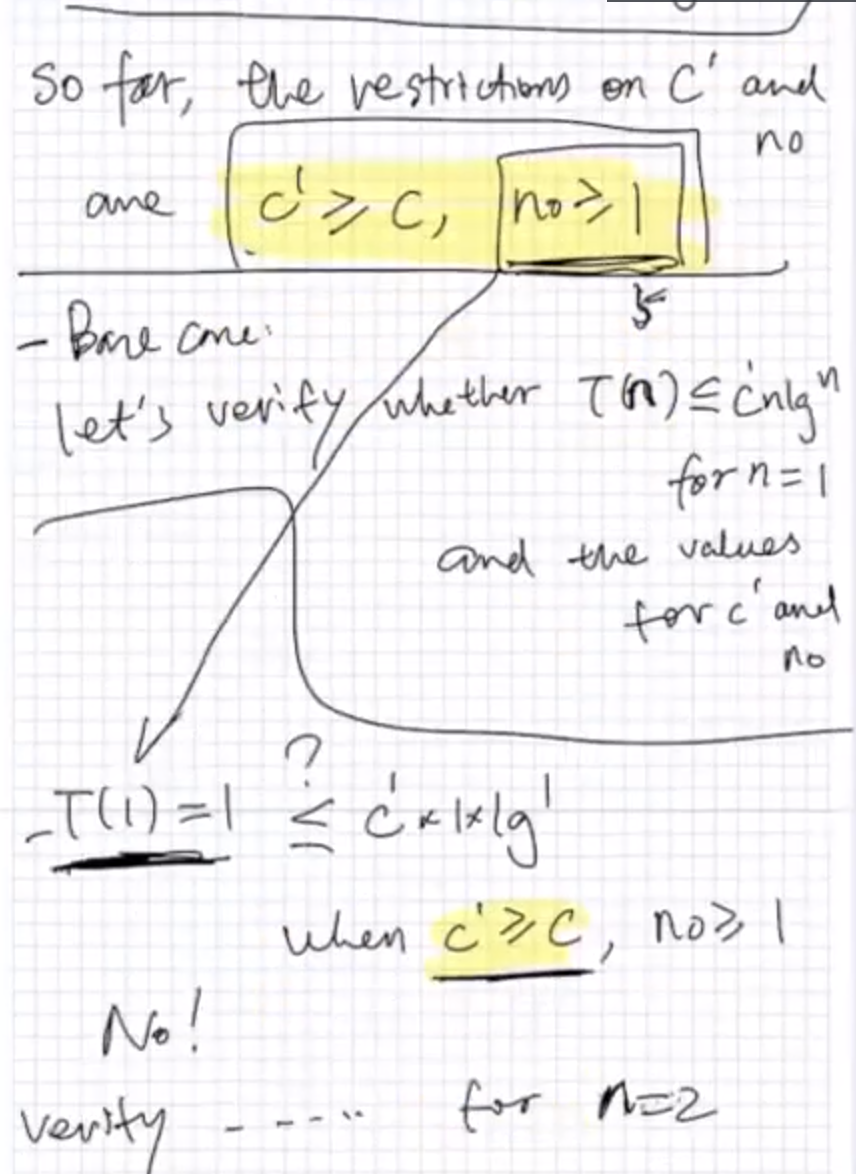 So far, the restrictions on c' and
no
are c' ≥ c, no ≥ 1
- Base case:
let's verify whether T(n) ≤ c'nlgn
for n = 1
and the values
for c' and
no
?
- T(1) = 1 ≤ c' × 1 × lg1
when c' ≥ c, no ≥ 1
No!
verify - - - .. for n=2